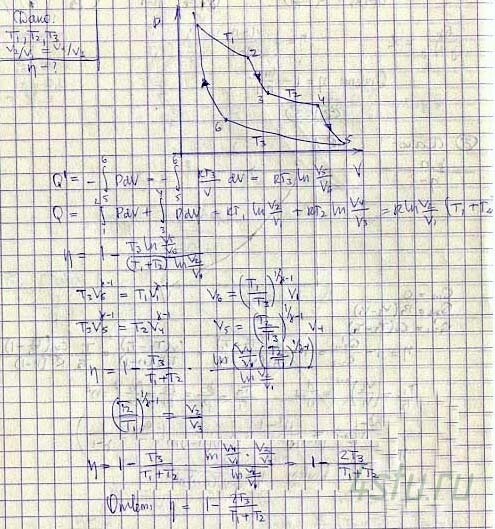 Дано:
T₁, T₂, T₃
V₂/V₁ = V₄/V₃
η - ?
P
T₁
2
3
T₂
4
6
T₃
5
V
Q' = - ∫₅⁶ PdV = - ∫₅⁶ RT₃/V dV = RT₃ ln V₅/V₆
Q = ∫₁² PdV + ∫₃⁴ PdV = RT₁ ln V₂/V₁ + RT₂ ln V₄/V₃ = R ln V₂/V₁ (T₁ + T₂
η = 1 - T₃ ln V₅/V₆ / (T₁+T₂) ln V₂/V₁
T₃V₆^(γ-1) = T₁V₁^(γ-1) V₆ = (T₁/T₃)^(1/γ-1) V₁
T₃V₅^(γ-1) = T₂V₄^(γ-1) V₅ = (T₂/T₃)^(1/γ-1) V₄
η = 1 - T₃/(T₁+T₂) · ln(V₄/V₁ (T₂/T₁)^(1/γ-1)) / ln V₂/V₁
(T₂/T₁)^(1/γ-1) = V₂/V₃
η = 1 - T₃/(T₁+T₂) · ln V₄/V₁ · V₂/V₃ / ln V₂/V₁ = 1 - 2T₃/(T₁+T₂)
Ответ: η = 1 - 2T₃/(T₁+T₂)
4stu.ru